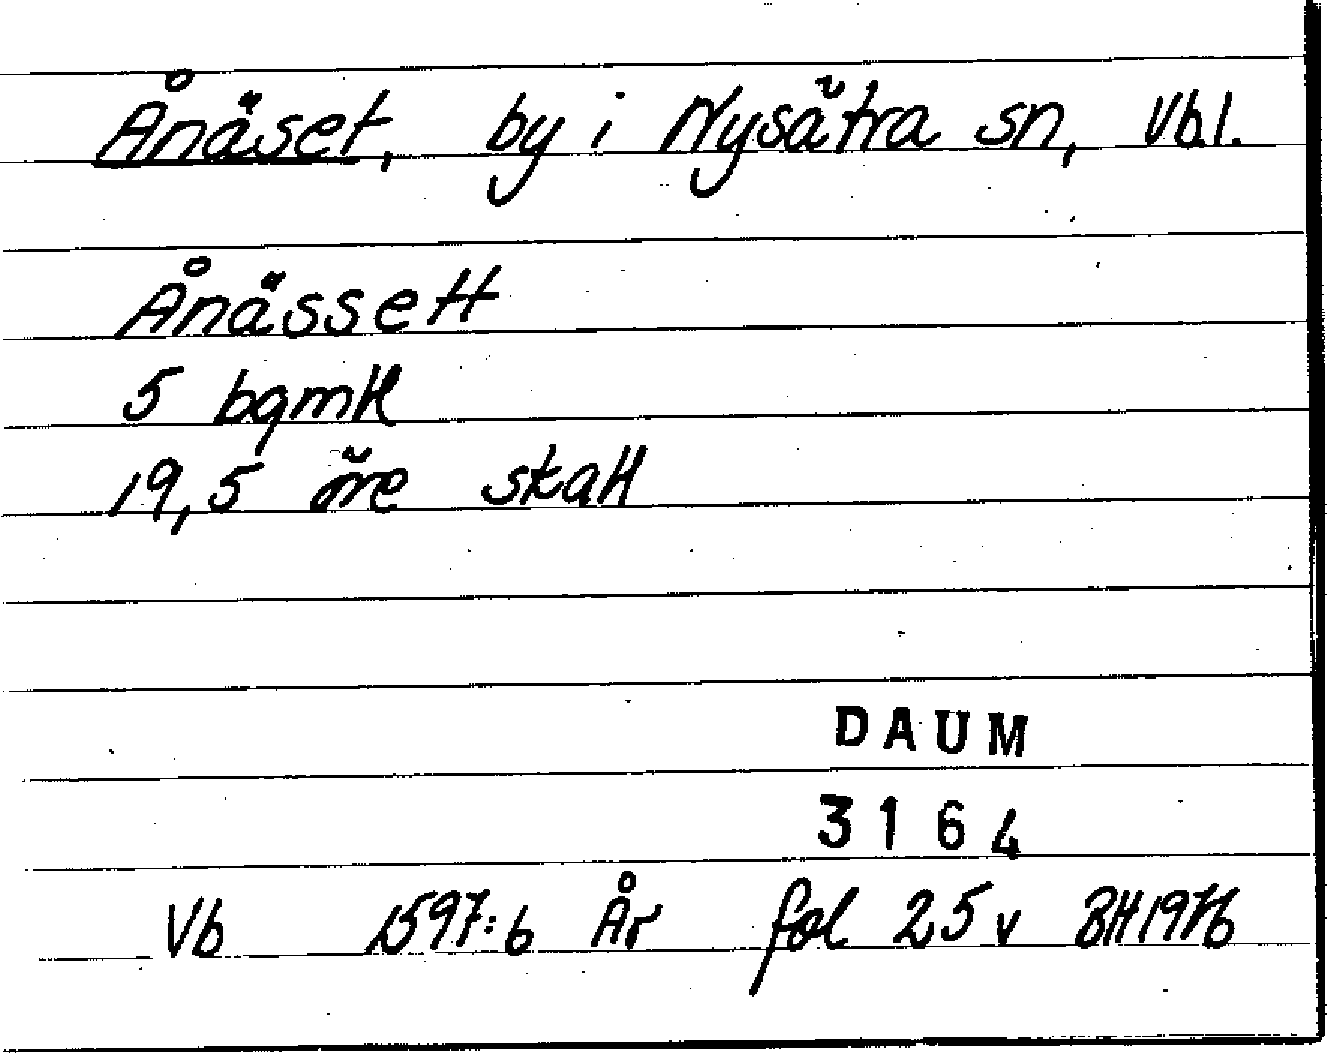 Ånäset, by i Nysätra sn, Vbl.
Ånässett
5 bqmtl
19,5 öre skatt
DAUM
3164
Vb 1597:6 År fol 25v BH1976